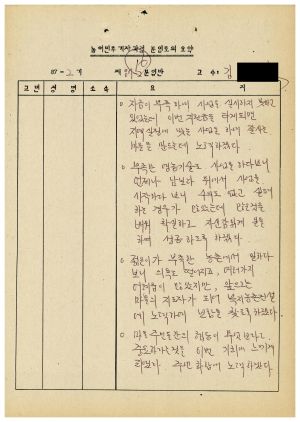 농어민후계자과정 분임토의 요약
(16)
87-2기 제 분임반 교수: 김
고번 성명 소속 요지
o 자금이 부족하여 사업을 실시하지 못하고
있었는데 이번 계획을 하게되면
지역실정에 맞는 사업을 하여 잘사는
마을을 만드는데 노력하겠다.
o 부족한 영농기술로 사업을 하다보니
언제나 남보다 뒤에서 사업을
시작하다 보니 수익도 없고 실패
하는 경우가 많았는데 많은것을
배워 확실하고 자신감있게 일을
하여 성공하도록 하겠다.
o 젊은이가 부족한 농촌에서 일하다
보니 의욕도 떨어지고, 여러가지
어려움이 많았지만, 앞으로는
마을의 지도자가 되어 복지농촌건설
에 노력하며 보람을 찾도록하겠다
o 마을주민들간의 협동이 무엇보다도
중요하다는것을 이번 기회에 느끼게
되었다. 주민 화합에 노력하겠다.